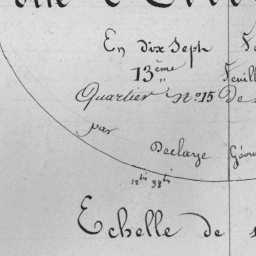 En dix Sept
13ème Feuill
Quartier N° 15 De
par
Declaye Géom
Echelle de